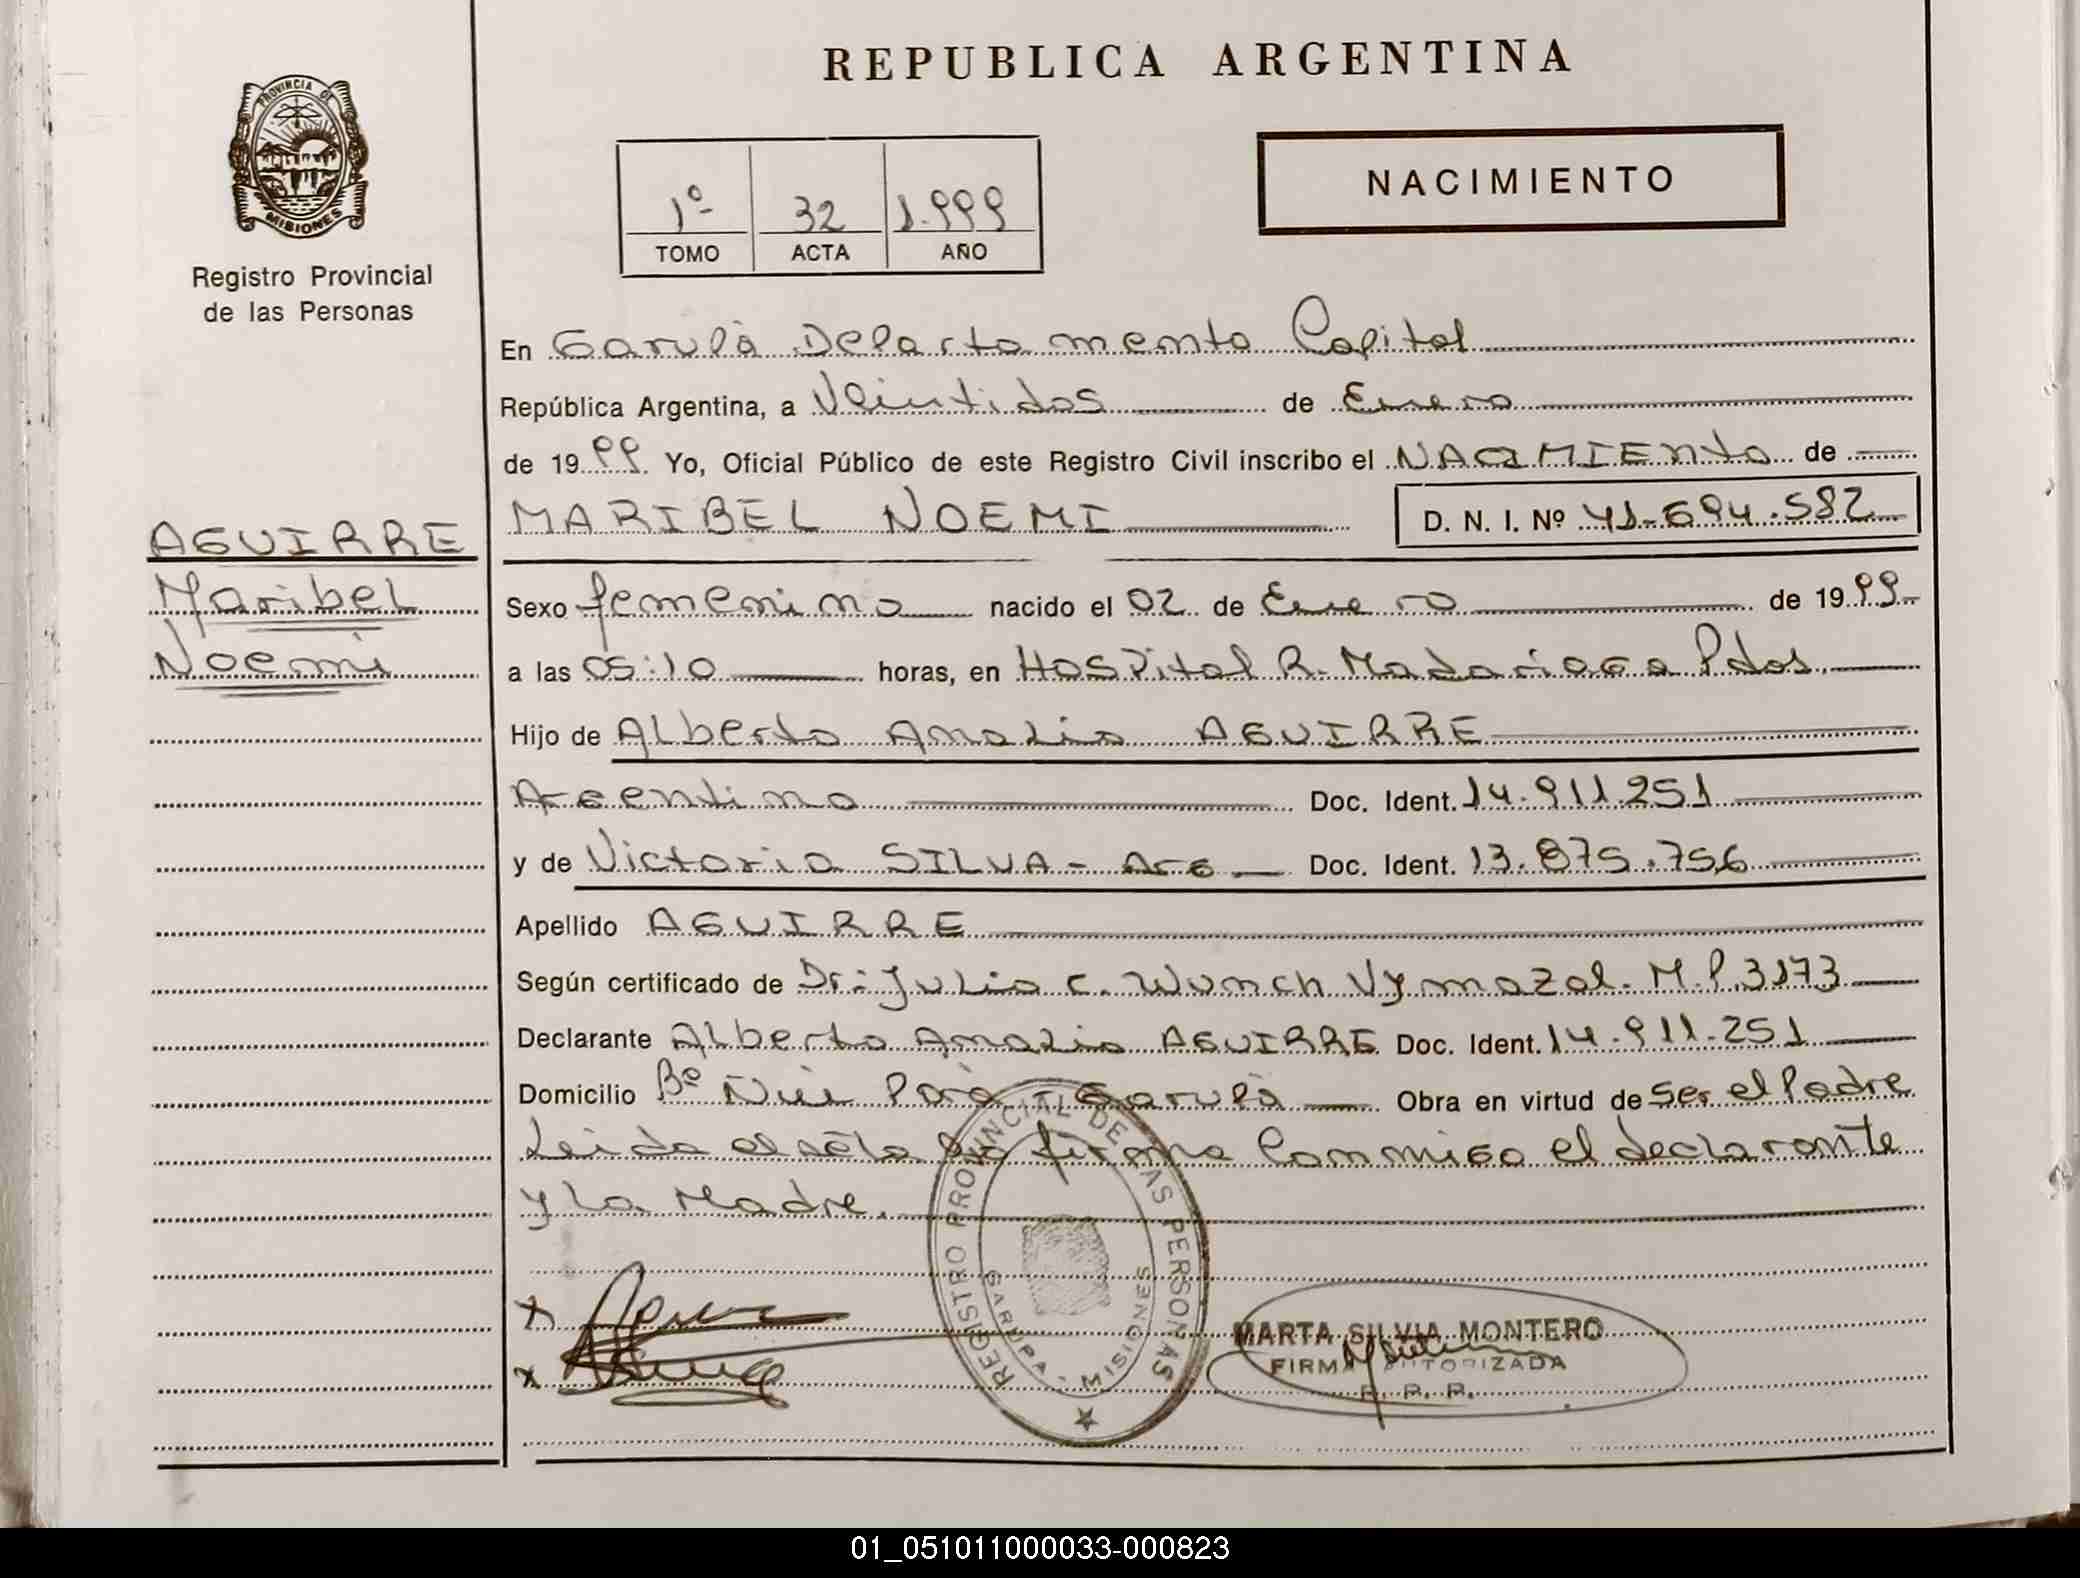 REPUBLICA ARGENTINA
PROVINCIA DE
MISIONES
Registro Provincial
de las Personas
NACIMIENTO
1º 32 1.999
TOMO ACTA AÑO
En Garupà Departamento Capital
República Argentina, a Veintidos de Enero
de 1999 Yo, Oficial Público de este Registro Civil inscribo el NACIMIENto de
MARIBEL NOEMI D. N. I. Nº 41-694.582
AGUIRRE
Maribel
Noemi
Sexo femenino nacido el 02 de Enero de 1999
a las 05:10 horas, en Hospital R. Madariaga Pdas.
Hijo de Alberto Amalio AGUIRRE
Argentino Doc. Ident. 14.911.251
y de Victoria SILVA - Arg Doc. Ident. 13.875.756
Apellido AGUIRRE
Según certificado de Dr: Julio C. Wunch Vymazal. M.P. 3173
Declarante Alberto Amalio AGUIRRE Doc. Ident. 14.911.251
Domicilio Bº Ñu Porà - Garupà Obra en virtud de Ser el Padre
Leida el acta la firma Conmigo el declarante
y la Madre.
REGISTRO PROVINCIAL DE LAS PERSONAS
GARUPA - MISIONES
x
x
MARTA SILVIA MONTERO
FIRMA AUTORIZADA
R. P. P.
01_051011000033-000823